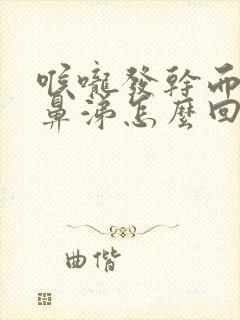 喉嚨發幹而
鼻涕怎麼回
曲偕